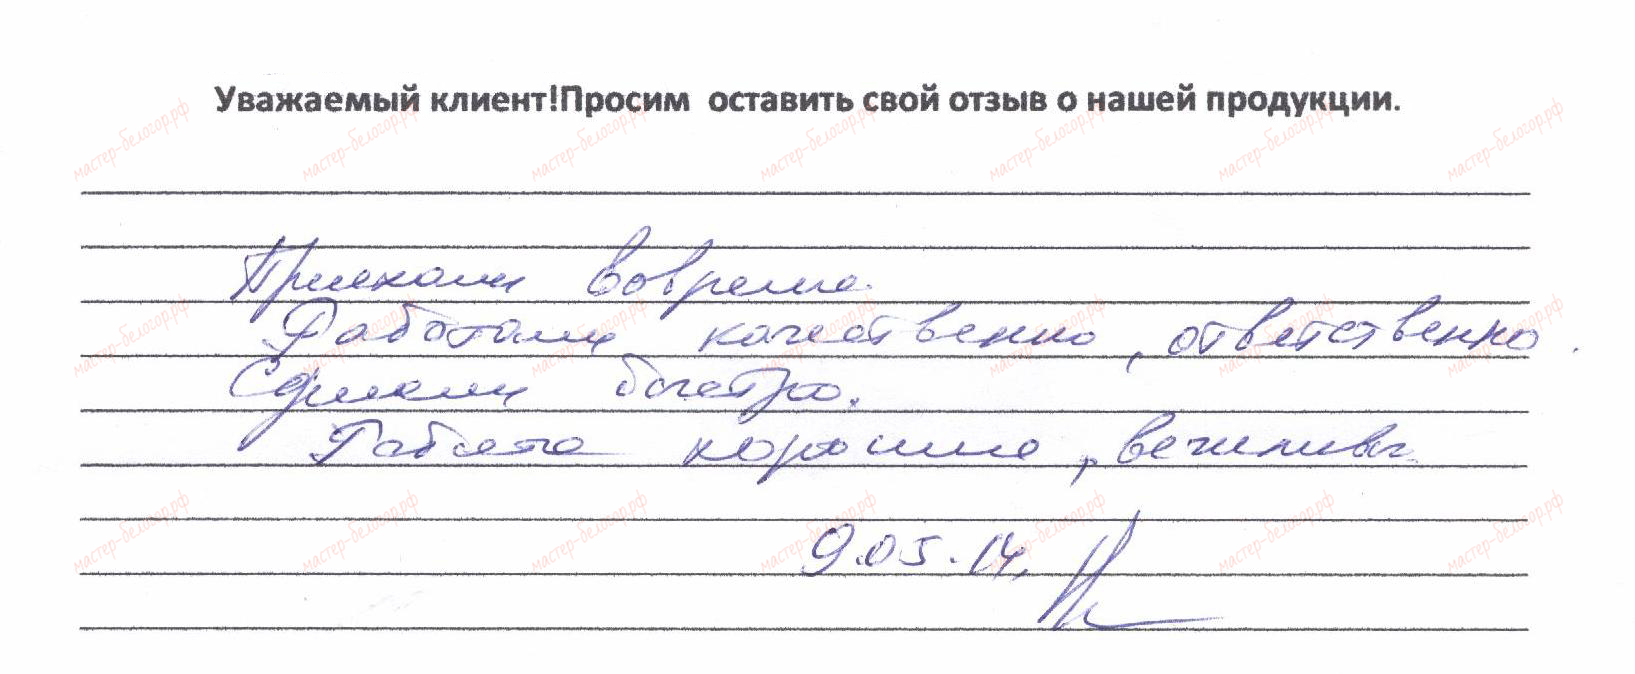 Уважаемый клиент!Просим оставить свой отзыв о нашей продукции.
Приехали вовремя.
Работали качественно, ответственно.
Сделали быстро.
Ребята хорошие, вежливы
9.05.14.
мастер-белогор.рф